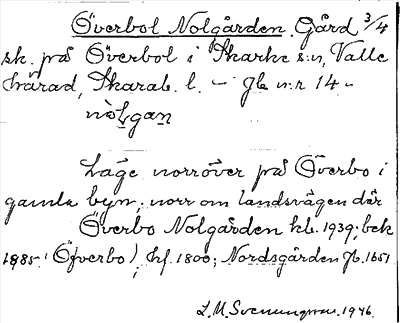 Överbol Nolgården. Gård 3/4
sk. på Överbol i Skarke s:n, Valle
härad, Skarab. l. – Jb n:r 14 –
nòlgan
Läge norröver på Överbo i
gamla byn, norr om landsvägen där
Överbo Nolgården kb. 1939; bek
1885 (Öfverbo), hf. 1800; Nordsgården Jb. 1651
L.M. Svenungsson. 1946.